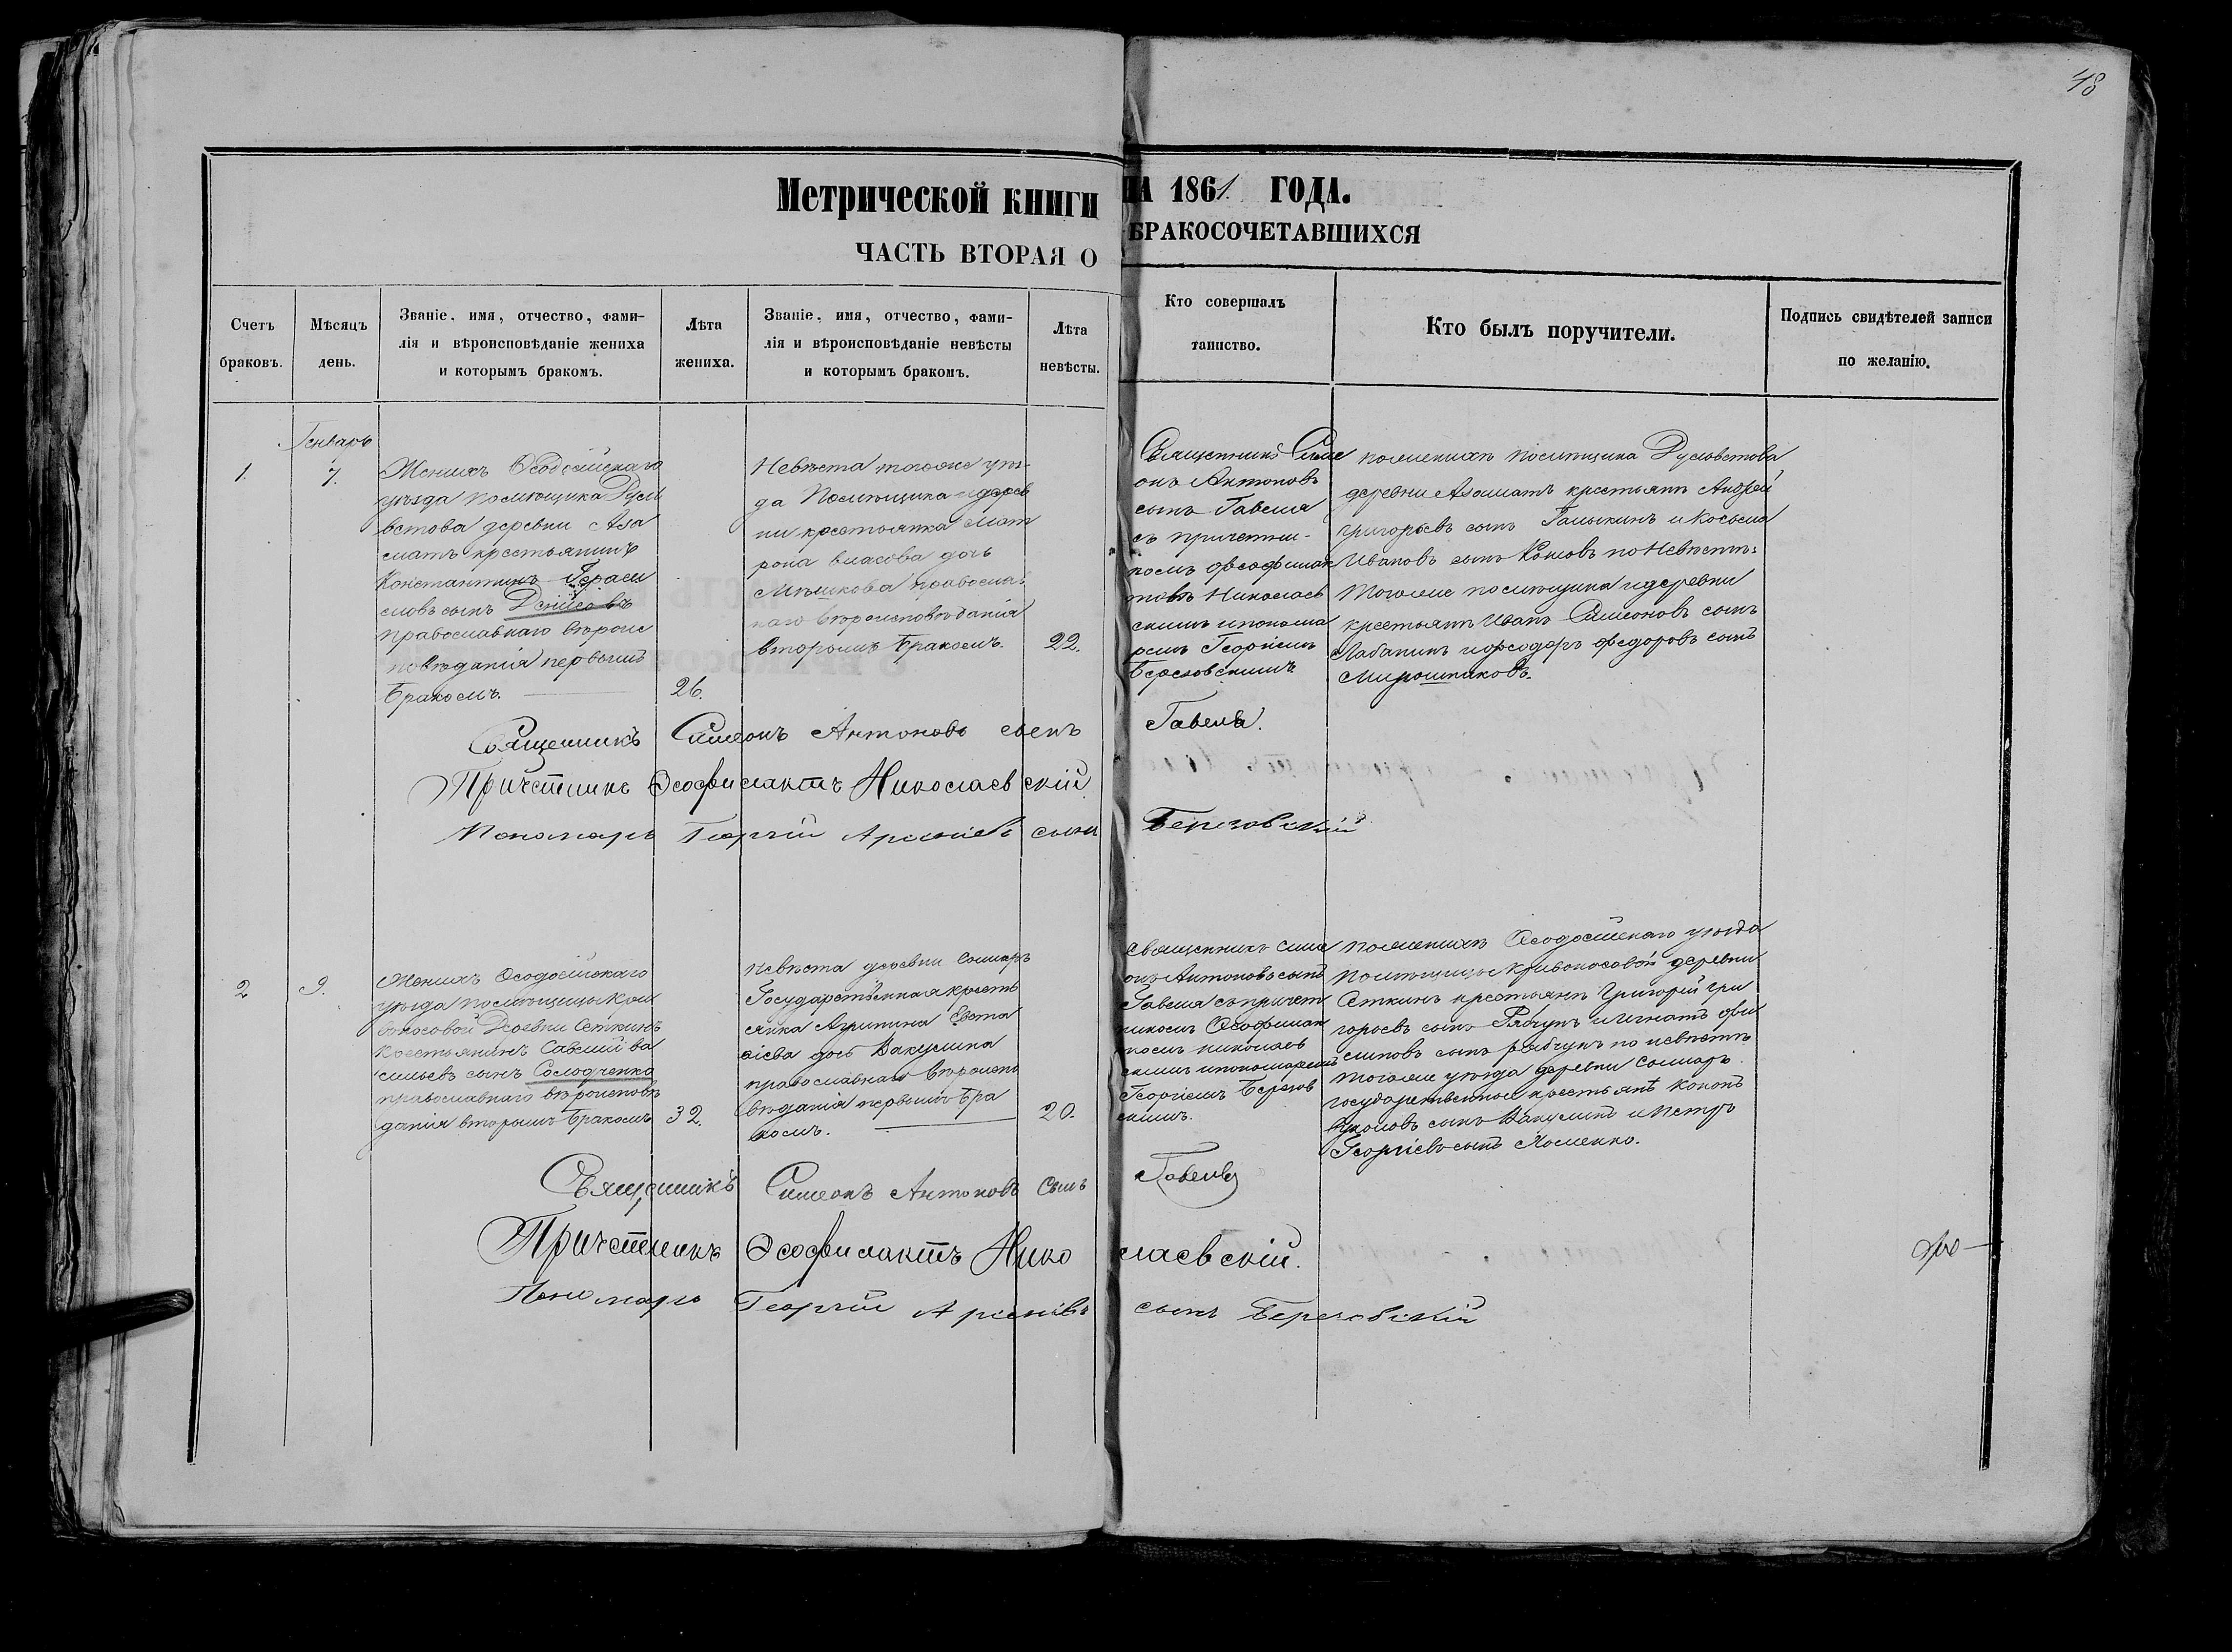 48
Метрической книги НА 1861 ГОДА.
ЧАСТЬ ВТОРАЯ О БРАКОСОЧЕТАВШИХСЯ
Счетъ
браковъ.
Мѣсяцъ
день.
Званіе, имя, отчество, фами-
лія и вѣроисповѣданіе жениха
и которымъ бракомъ.
Лѣта
жениха.
Званіе, имя, отчество, фами-
лія и вѣроисповѣданіе невѣсты
и которымъ бракомъ.
Лѣта
невѣсты.
Кто совершалъ
таинство.
Кто былъ поручители.
Подпись свидѣтелей записи
по желанію.
Генварь
1.
7.
Женихъ Ѳеодосійскаго
уѣзда помѣщика Русл
ветова деревни Аза
матъ крестьянинъ
Константинъ Гераси
мовъ сынъ Денисовъ
православнаго вѣроис
повѣданія первымъ
бракомъ.
26.
Невѣста тогоже уѣз-
да Помѣщика и дерев
ни крестьянка Мат
рона Власова дочь
Мѣшкова православ
наго вѣроисповѣданія
вторымъ бракомъ.
22.
Священникъ Симе
онъ Антоновъ
сынъ Гавеля
съ причетни-
комъ Ѳеофилак
томъ Николаев
скимъ и понома
ремъ Георгіемъ
Березовскимъ
по женихѣ помѣщика Рудзветова
деревни Азаматъ крестьяне Андрей
Григорьевъ сынъ Галыкинъ и Косьма
Ивановъ сынъ по Невѣстѣ:
тогоже помѣщика и деревни
крестьяне Иванъ Симеоновъ сынъ
Лабанинъ и Феодоръ Федоровъ сынъ
Мирошниковъ.
Священникъ Симеонъ Антоновъ сынъ Гавеля.
Причетникъ Ѳеофилактъ Николаевскій
Пономарь Георгій Арсеніевъ сынъ Березовскій
2
9.
Женихъ Ѳеодосійскаго
уѣзда помѣщицы Кри
вокосовой Деревни Сеткинъ
крестьянинъ Савелій Ва
сильевъ сынъ Солодченко
православнаго вѣроисповѣ
данія вторымъ бракомъ
32.
Невѣста деревни Солларъ
Государственная кресть
янка Агрипина Евста
фіева дочь Вакулина
православнаго вѣроиспо
вѣданія первымъ бра
комъ.
20.
Священникъ Симе
онъ Антоновъ сынъ
Гавеля съ причет
никомъ Ѳеофилак
томъ Николаев
скимъ и пономаремъ
Георгіемъ Березов
скимъ.
по женихѣ Ѳеодосійскаго уѣзда
Помѣщицы Кривокосовой деревни
Сеткинъ крестьяне Григорій Гри
горьевъ сынъ Рябчунъ и Игнатъ Фи
липовъ сынъ Рябчунъ по невѣстѣ
тогоже уѣзда деревни Солларъ
государственные крестьяне Кононъ
сынъ Вакулинъ и Петръ
Георгіевъ сынъ
Священникъ Симеонъ Антоновъ сынъ Гавеля
Причетникъ Ѳеофилактъ Николаевскій.
Пономарь Георгій Арсеніевъ сынъ Березовскій